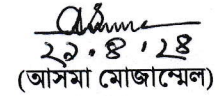 ২৯.৪.২৪
(আসমা মোজাম্মেল)